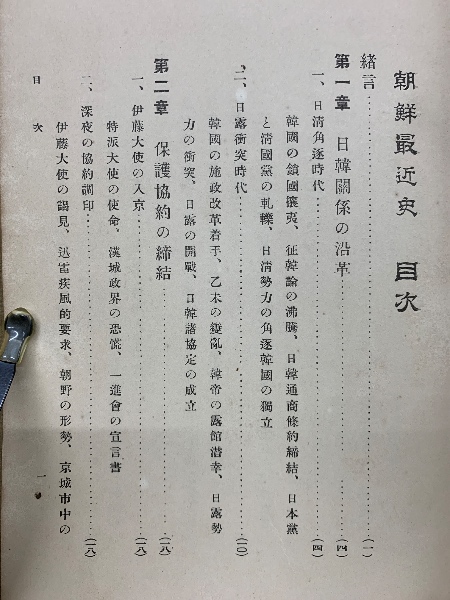 朝鮮最近史 目次
緒言……………………………………(一)
第一章 日韓關係の沿革……………………(四)
一、日淸角逐時代……………………………(四)
韓國の鎖國攘夷、征韓論の沸騰、日韓通商條約締結、日本黨
と淸國黨の軋轢、日淸勢力の角逐韓國の獨立
二、日露衝突時代……………………………(一〇)
韓國の施政改革着手、乙未の變亂、韓帝の露館潜幸、日露勢
力の衝突、日露の開戰、日韓諸協定の成立
第二章 保護協約の締結……………………(一八)
一、伊藤大使の入京…………………………(一八)
特派大使の使命、漢城政界の恐慌、一進會の宣言書
二、深夜の協約調印…………………………(一八)
伊藤大使の謁見、迅雷疾風的要求、朝野の形勢、京城市中の
目次 一